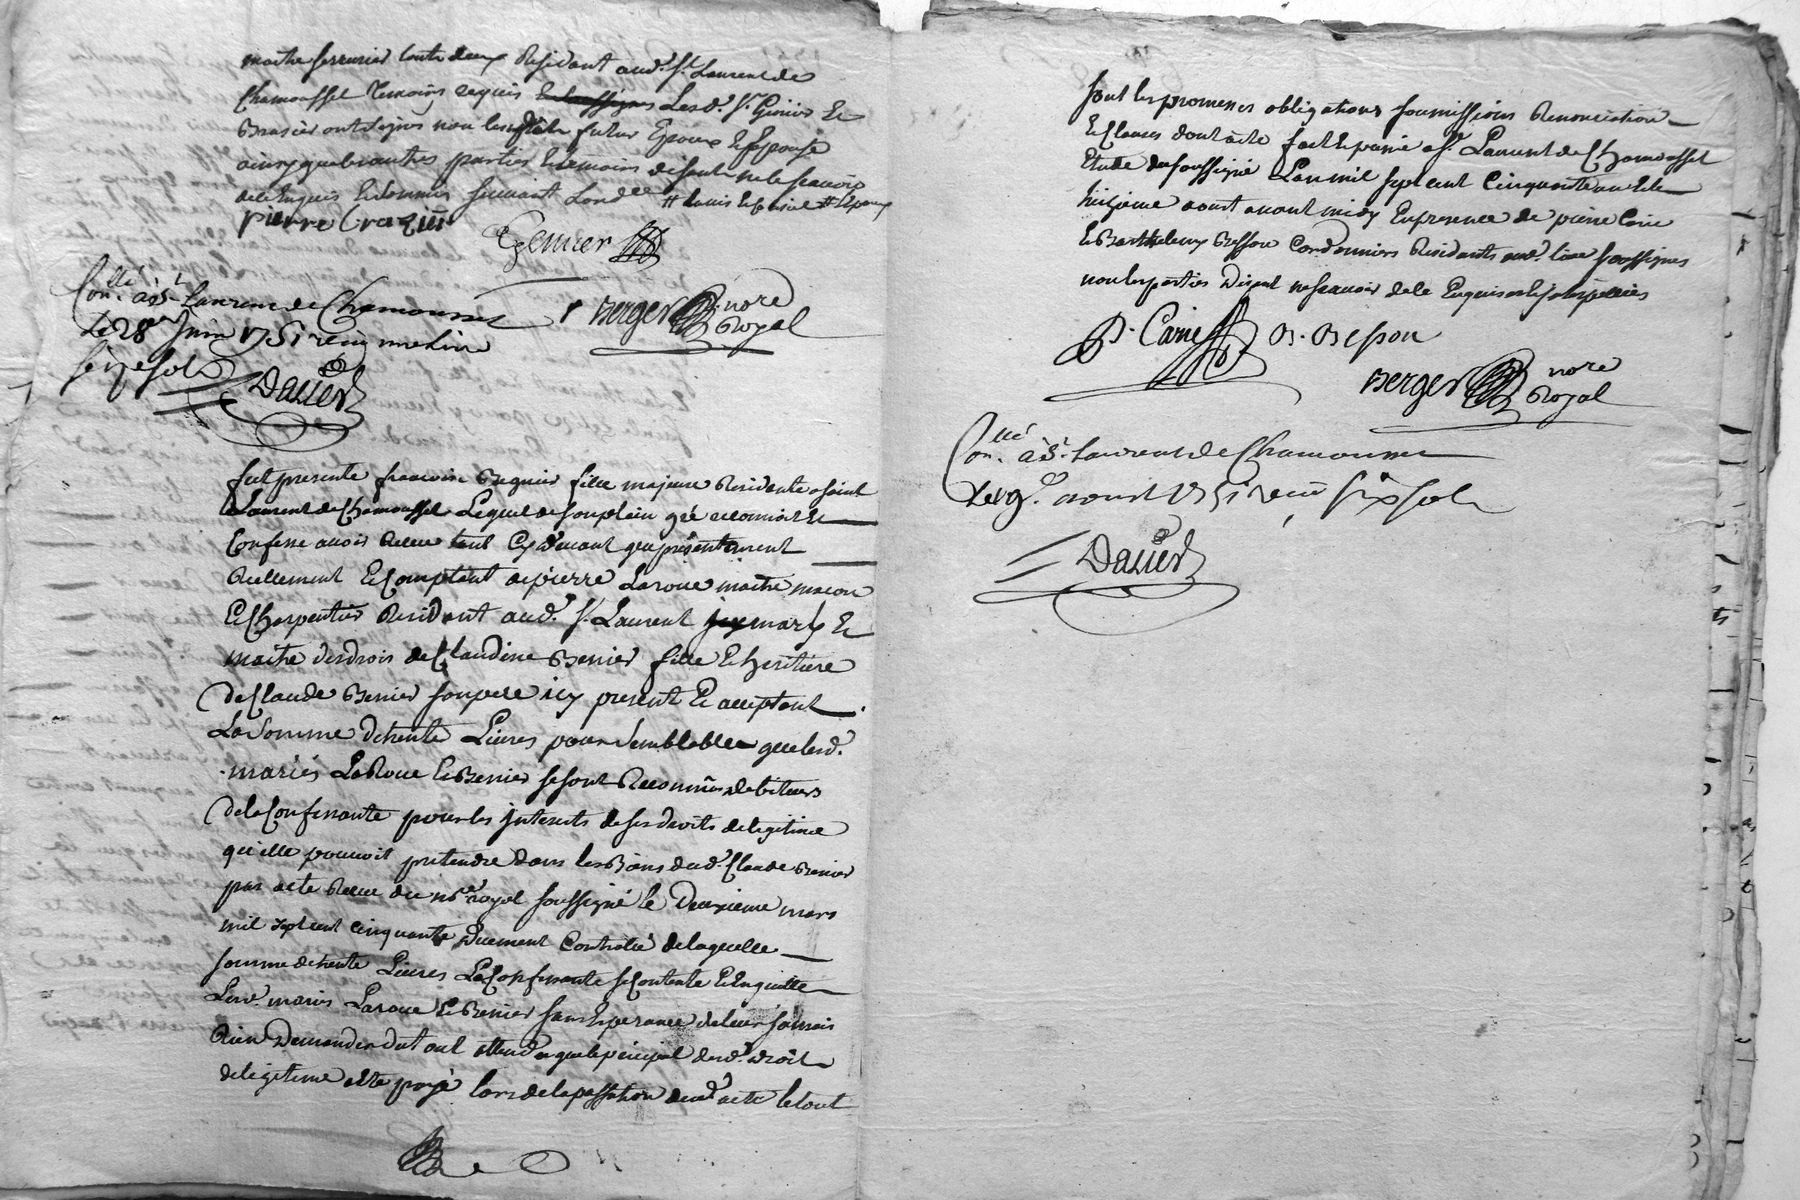 maitre serrurier touts deux Residant aud.t S.t Laurent de
Chamousset Temoins requis Lesd.s s.r Genier et
Brasier ont signes non lesd. futur Epoux et Epouse
ainsy que les autres parties et temoins disant ne le scavoir
de ce Enquis et sommes suivant Lord.ce
pierre Craqui
Genier
Con.llé a s.t Laurent de Chamousset
Le 28.e Juin 1751 reçu
seize sols
Berger no.re Royal
Dalier
fut presente francoise Begnier fille majeure Residente a saint
Laurent de Chamousset Lequel de son plein gré reconnoit et
Confesse avoir Receu tant Cy devant que présentement
Reellement et Comptant de pierre Laroue maitre macon
et Charpentier Residant aud.t s.t Laurent mary et
maitre des drois de Claudine Benier fille et heritiere
de Claude Benier son pere icy present et acceptant
La somme de trente Livres pour semblable que lesd.s
mariés LaRoue et Benier se sont Reconnus debiteurs
de la Confessante pour les interests de ses droits de legitime
qu'elle pouvoit pretendre dans les Biens dud.t Claude Benier
par acte Receu du no.re royal soussigné le Deuxieme mars
mil sept cent cinquante duement Controllé de laquelle
somme de trente Livres La Confessante se Contente et En quitte
Lesd.s mariés Laroue et Benier sans Esperance de leur jamais
Rien Demander dutout attendu que le principal desd.s droits
de legitime a été payé lors de la passation dud.t acte le tout
sous les promesses obligations soumissions Renonciation
et clauses dont acte fait et passé a s.t Laurent de Chamousset
Etude du soussigné Lan mil sept cent cinquante un et le
seizieme aoust avant midy En presence de pierre Carie
et Barthelemy Besson Cordonniers Residants aud.t lieu soussignes
non les parties Disant ne scavoir de ce Enquises
P. Carie
B. Besson
Berger no.re Royal
Con.llé a s.t Laurent de Chamousset
Le 19.e aoust 1751 reçu six sols
Dalier